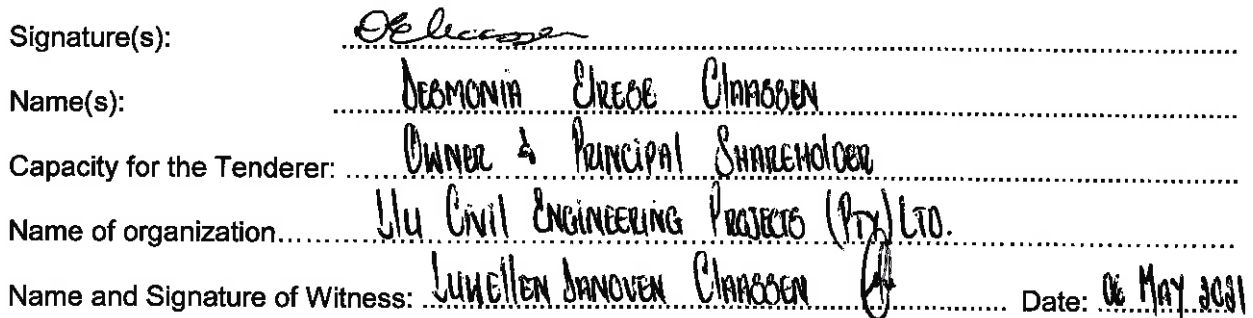 Signature(s):
Name(s): DESMONIA ELRESE CLAASSEN
Capacity for the Tenderer: OWNER & PRINCIPAL SHAREHOLDER
Name of organization CIVIL ENGINEERING PROJECTS (PTY) LTD.
Name and Signature of Witness: CLAASSEN Date: 06 MAY 2021